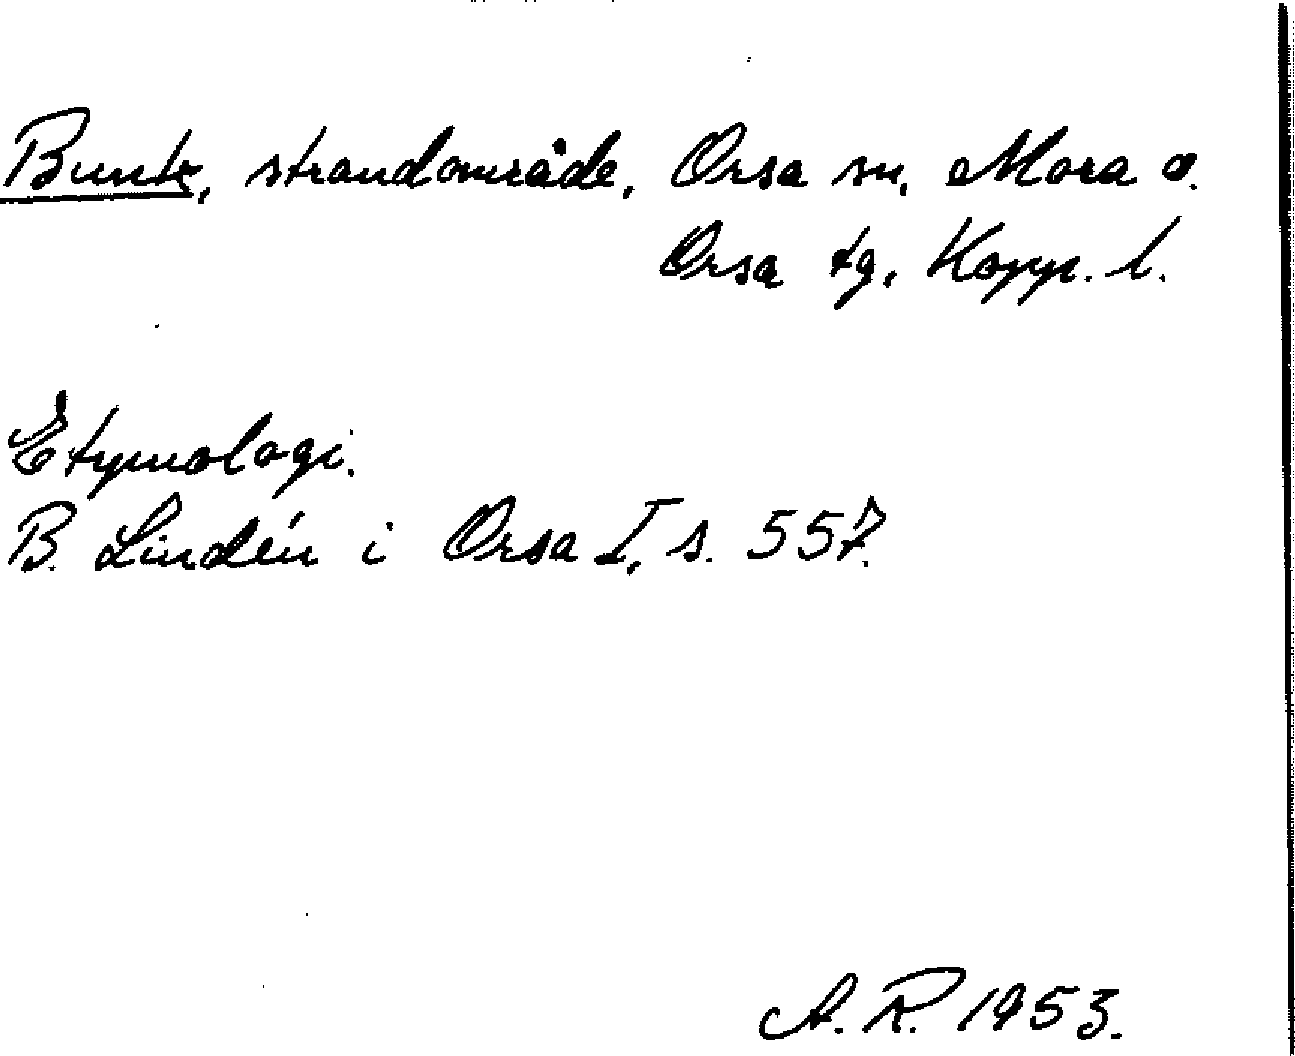 Bunk, strandområde, Orsa sn, Mora o.
Orsa tg, Kopp. l.
Etymologi.
B. Lindén i Orsa I, s. 557.
A. R. 1953.